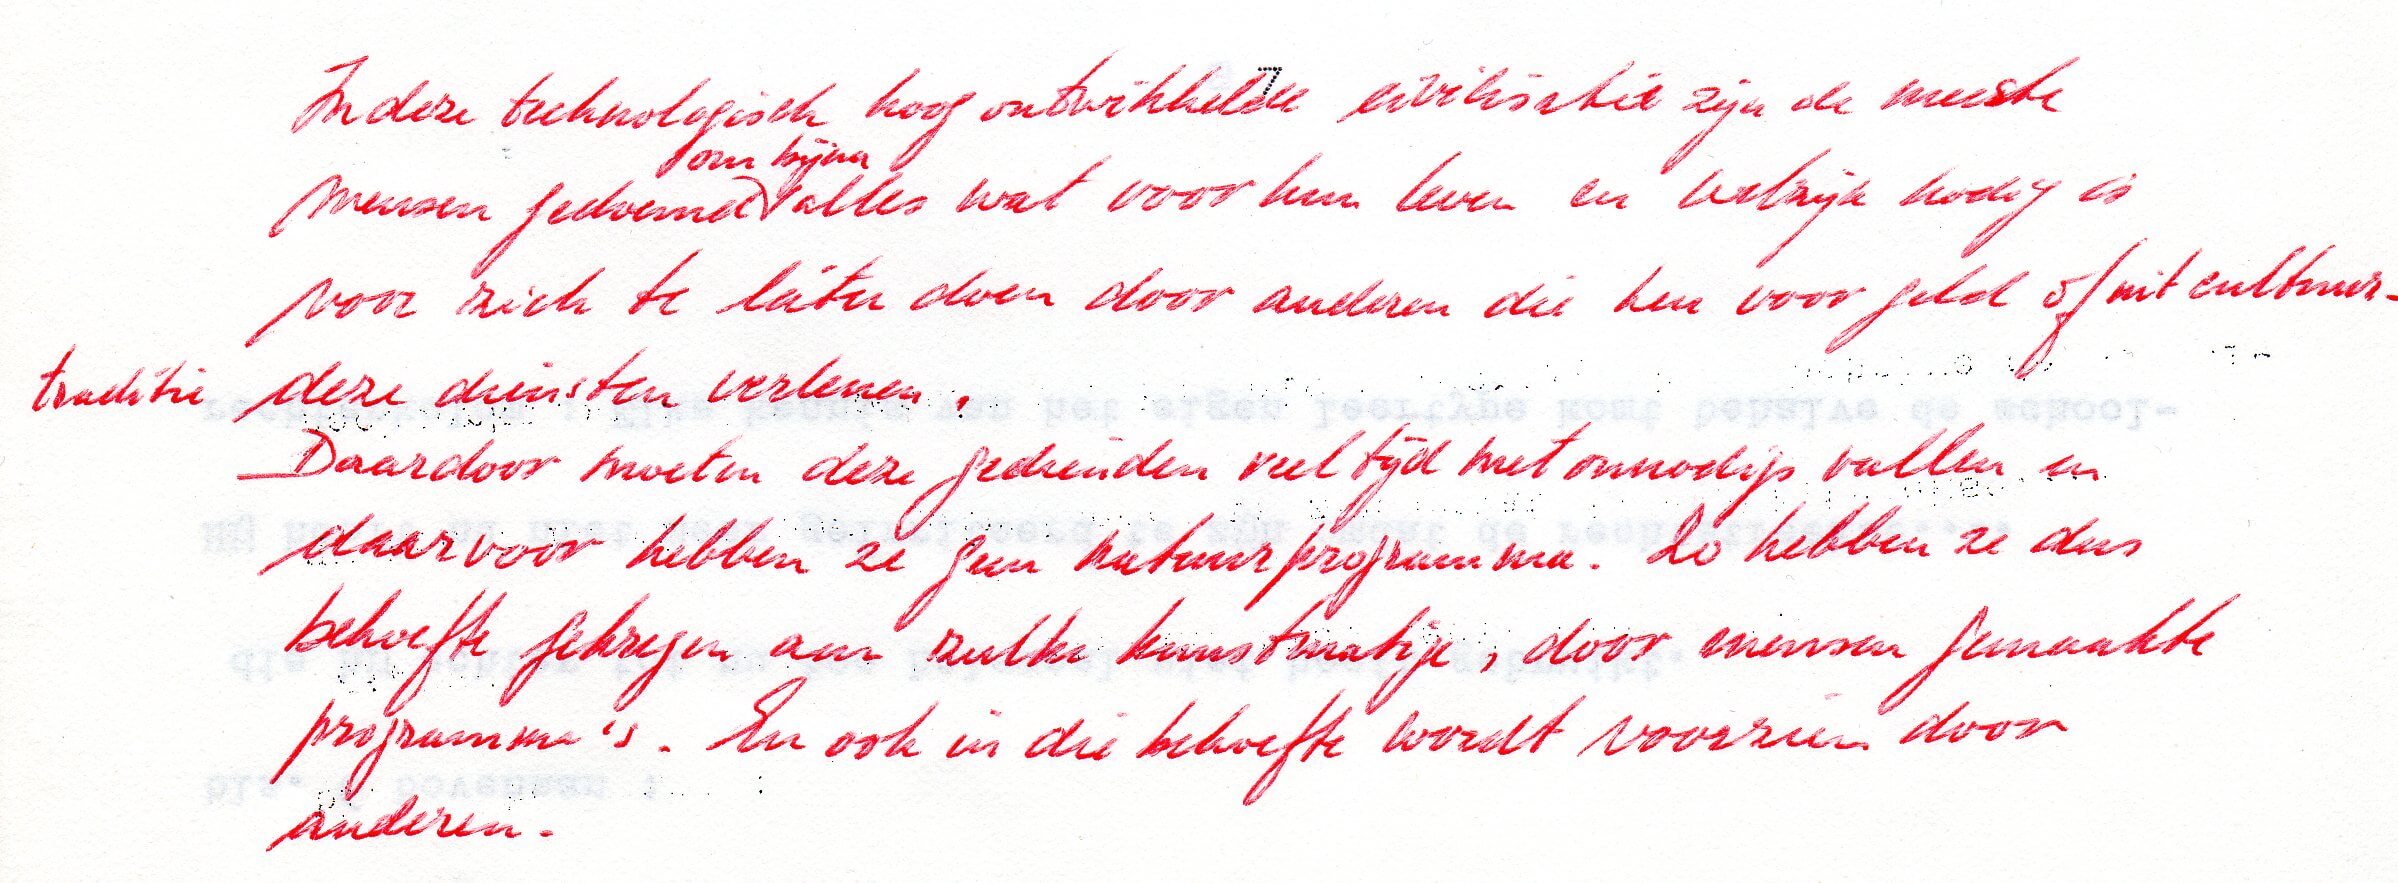 7
In deze technologisch hoog ontwikkelde civilisatie zijn de meeste
om bijna
mensen gedoemd alles wat voor hun leven en welzijn nodig is
voor zich te laten doen door anderen die hen voor geld of uit cultuur-
traditie deze diensten verlenen.
Daardoor moeten deze gedienden veel tijd met onnodigs vullen en
daarvoor hebben ze geen natuurprogramma. Zo hebben ze dus
behoefte gekregen aan zulke kunstmatige, door mensen gemaakte
programma's. En ook in die behoefte wordt voorzien door
anderen.